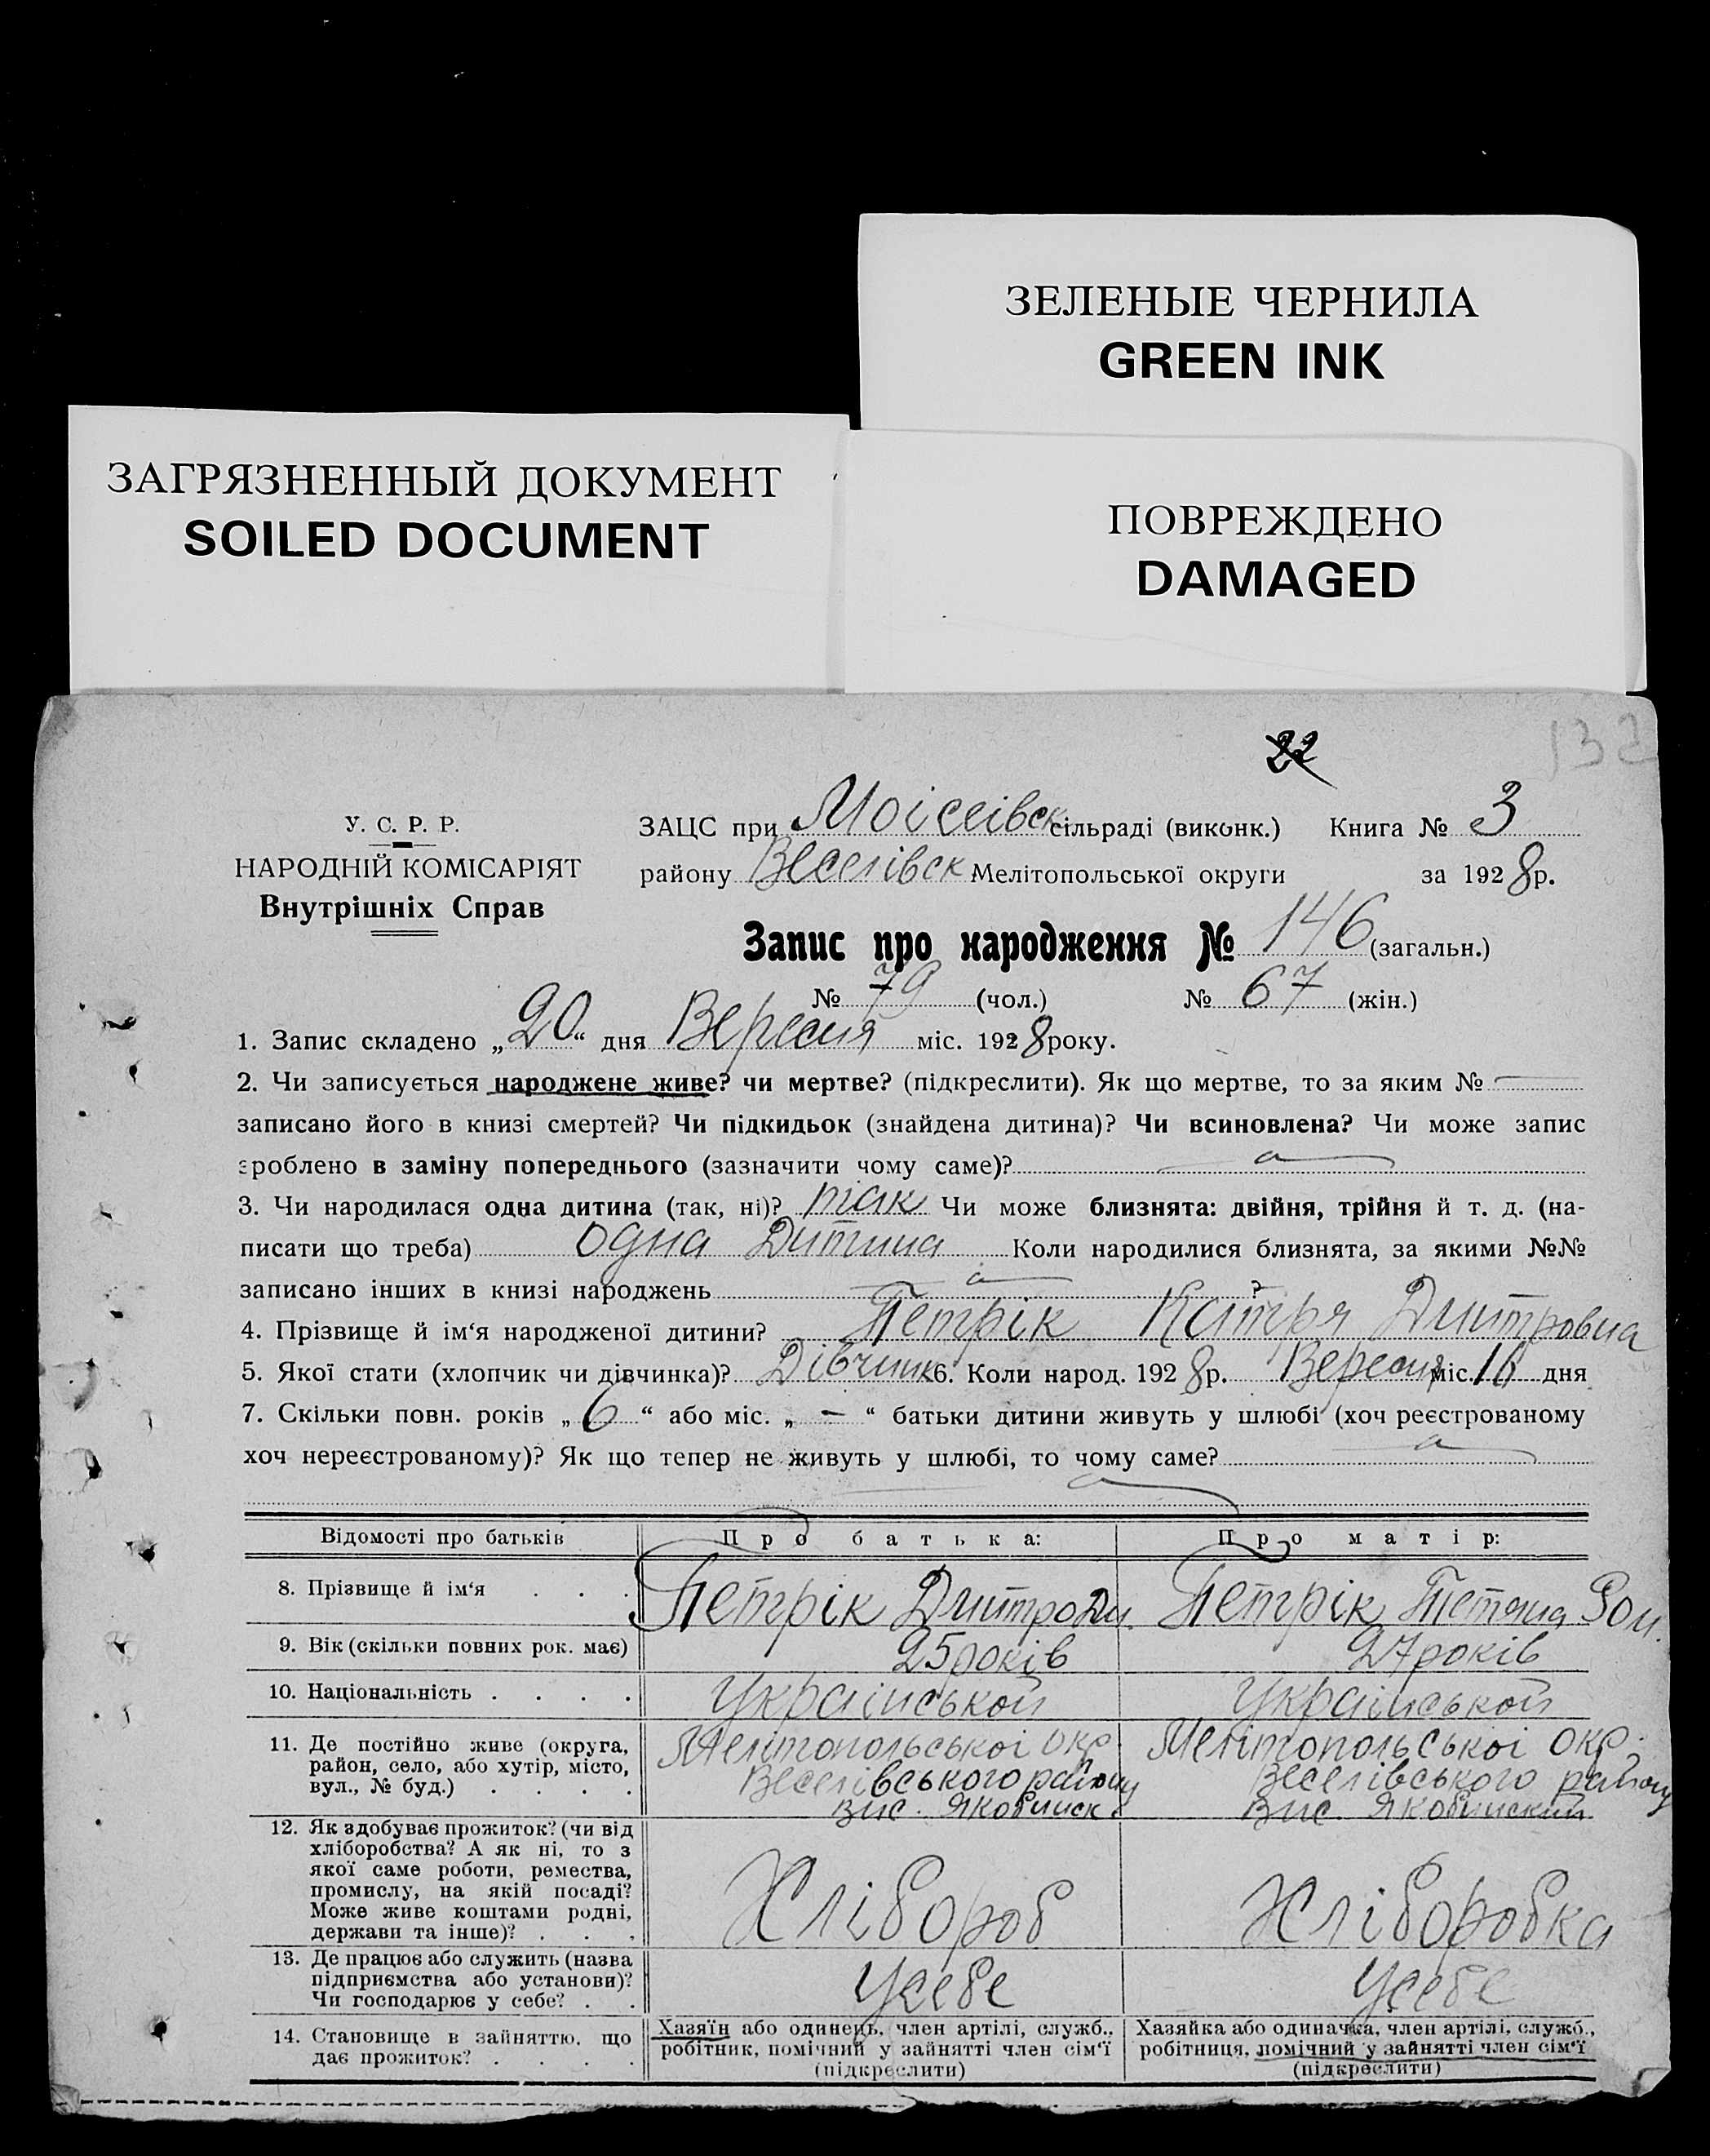 ЗЕЛЕНЫЕ ЧЕРНИЛА
GREEN INK
ЗАГРЯЗНЕННЫЙ ДОКУМЕНТ
SOILED DOCUMENT
ПОВРЕЖДЕНО
DAMAGED
22
132
У. С. Р. Р.
НАРОДНІЙ КОМІСАРІЯТ
Внутрішніх Справ
ЗАЦС при Моісеївск сільраді (виконк.) Книга № 3
району Веселівск Мелітопольської округи за 1928р.
Запис про народження № 146 (загальн.)
№ 79 (чол.) № 67 (жін.)
1. Запис складено „20“ дня Вересня міс. 1928року.
2. Чи записується народжене живе? чи мертве? (підкреслити). Як що мертве, то за яким № —
записано його в книзі смертей? Чи підкидьок (знайдена дитина)? Чи всиновлена? Чи може запис
зроблено в заміну попереднього (зазначити чому саме)?
3. Чи народилася одна дитина (так, ні)? так Чи може близнята: двійня, трійня й т. д. (на-
писати що треба) одна Дитина Коли народилися близнята, за якими №№
записано інших в книзі народжень ?
4. Прізвище й ім‘я народженої дитини? Петрік Катря Дмитровна
5. Якої стати (хлопчик чи дівчинка)? Дівчинк 6. Коли народ. 1928р. Вересня міс. дня
7. Скільки повн. років „6“ або міс. „–“ батьки дитини живуть у шлюбі (хоч реєстрованому
хоч нереєстрованому)? Як що тепер не живуть у шлюбі, то чому саме?
Відомості про батьків Про батька: Про матір:
8. Прізвище й ім‘я . . . Петрік Дмитро Дм. Петрік Тетяна Ром.
9. Вік (скільки повних рок. має) 25років 27років
10. Національність . . . . Украінськой Украінськой
11. Де постійно живе (округа, Мелитопольської окр. Мелітопольської окр.
район, село, або хутір, місто, Веселівського району Веселівського району
вул., № буд.) . . . . Вис. Якобинск Вис. Якобинский
12. Як здобуває прожиток? (чи від
хліборобства? А як ні, то з
якої саме роботи, ремества,
промислу, на якій посаді? Хлібороб Хліборобка
Може живе коштами родні,
держави та інше)? . . .
13. Де працює або служить (назва
підприємства або установи)? Усебе Усебе
Чи господарює у себе? . .
14. Становище в зайняттю, що Хазяїн або одинець, член артілі, служб., Хазяйка або одиначка, член артілі, служб.,
дає прожиток? . . . . робітник, помічний у зайнятті член сім‘ї робітниця, помічний у зайнятті член сім‘ї
(підкреслити) (підкреслити)